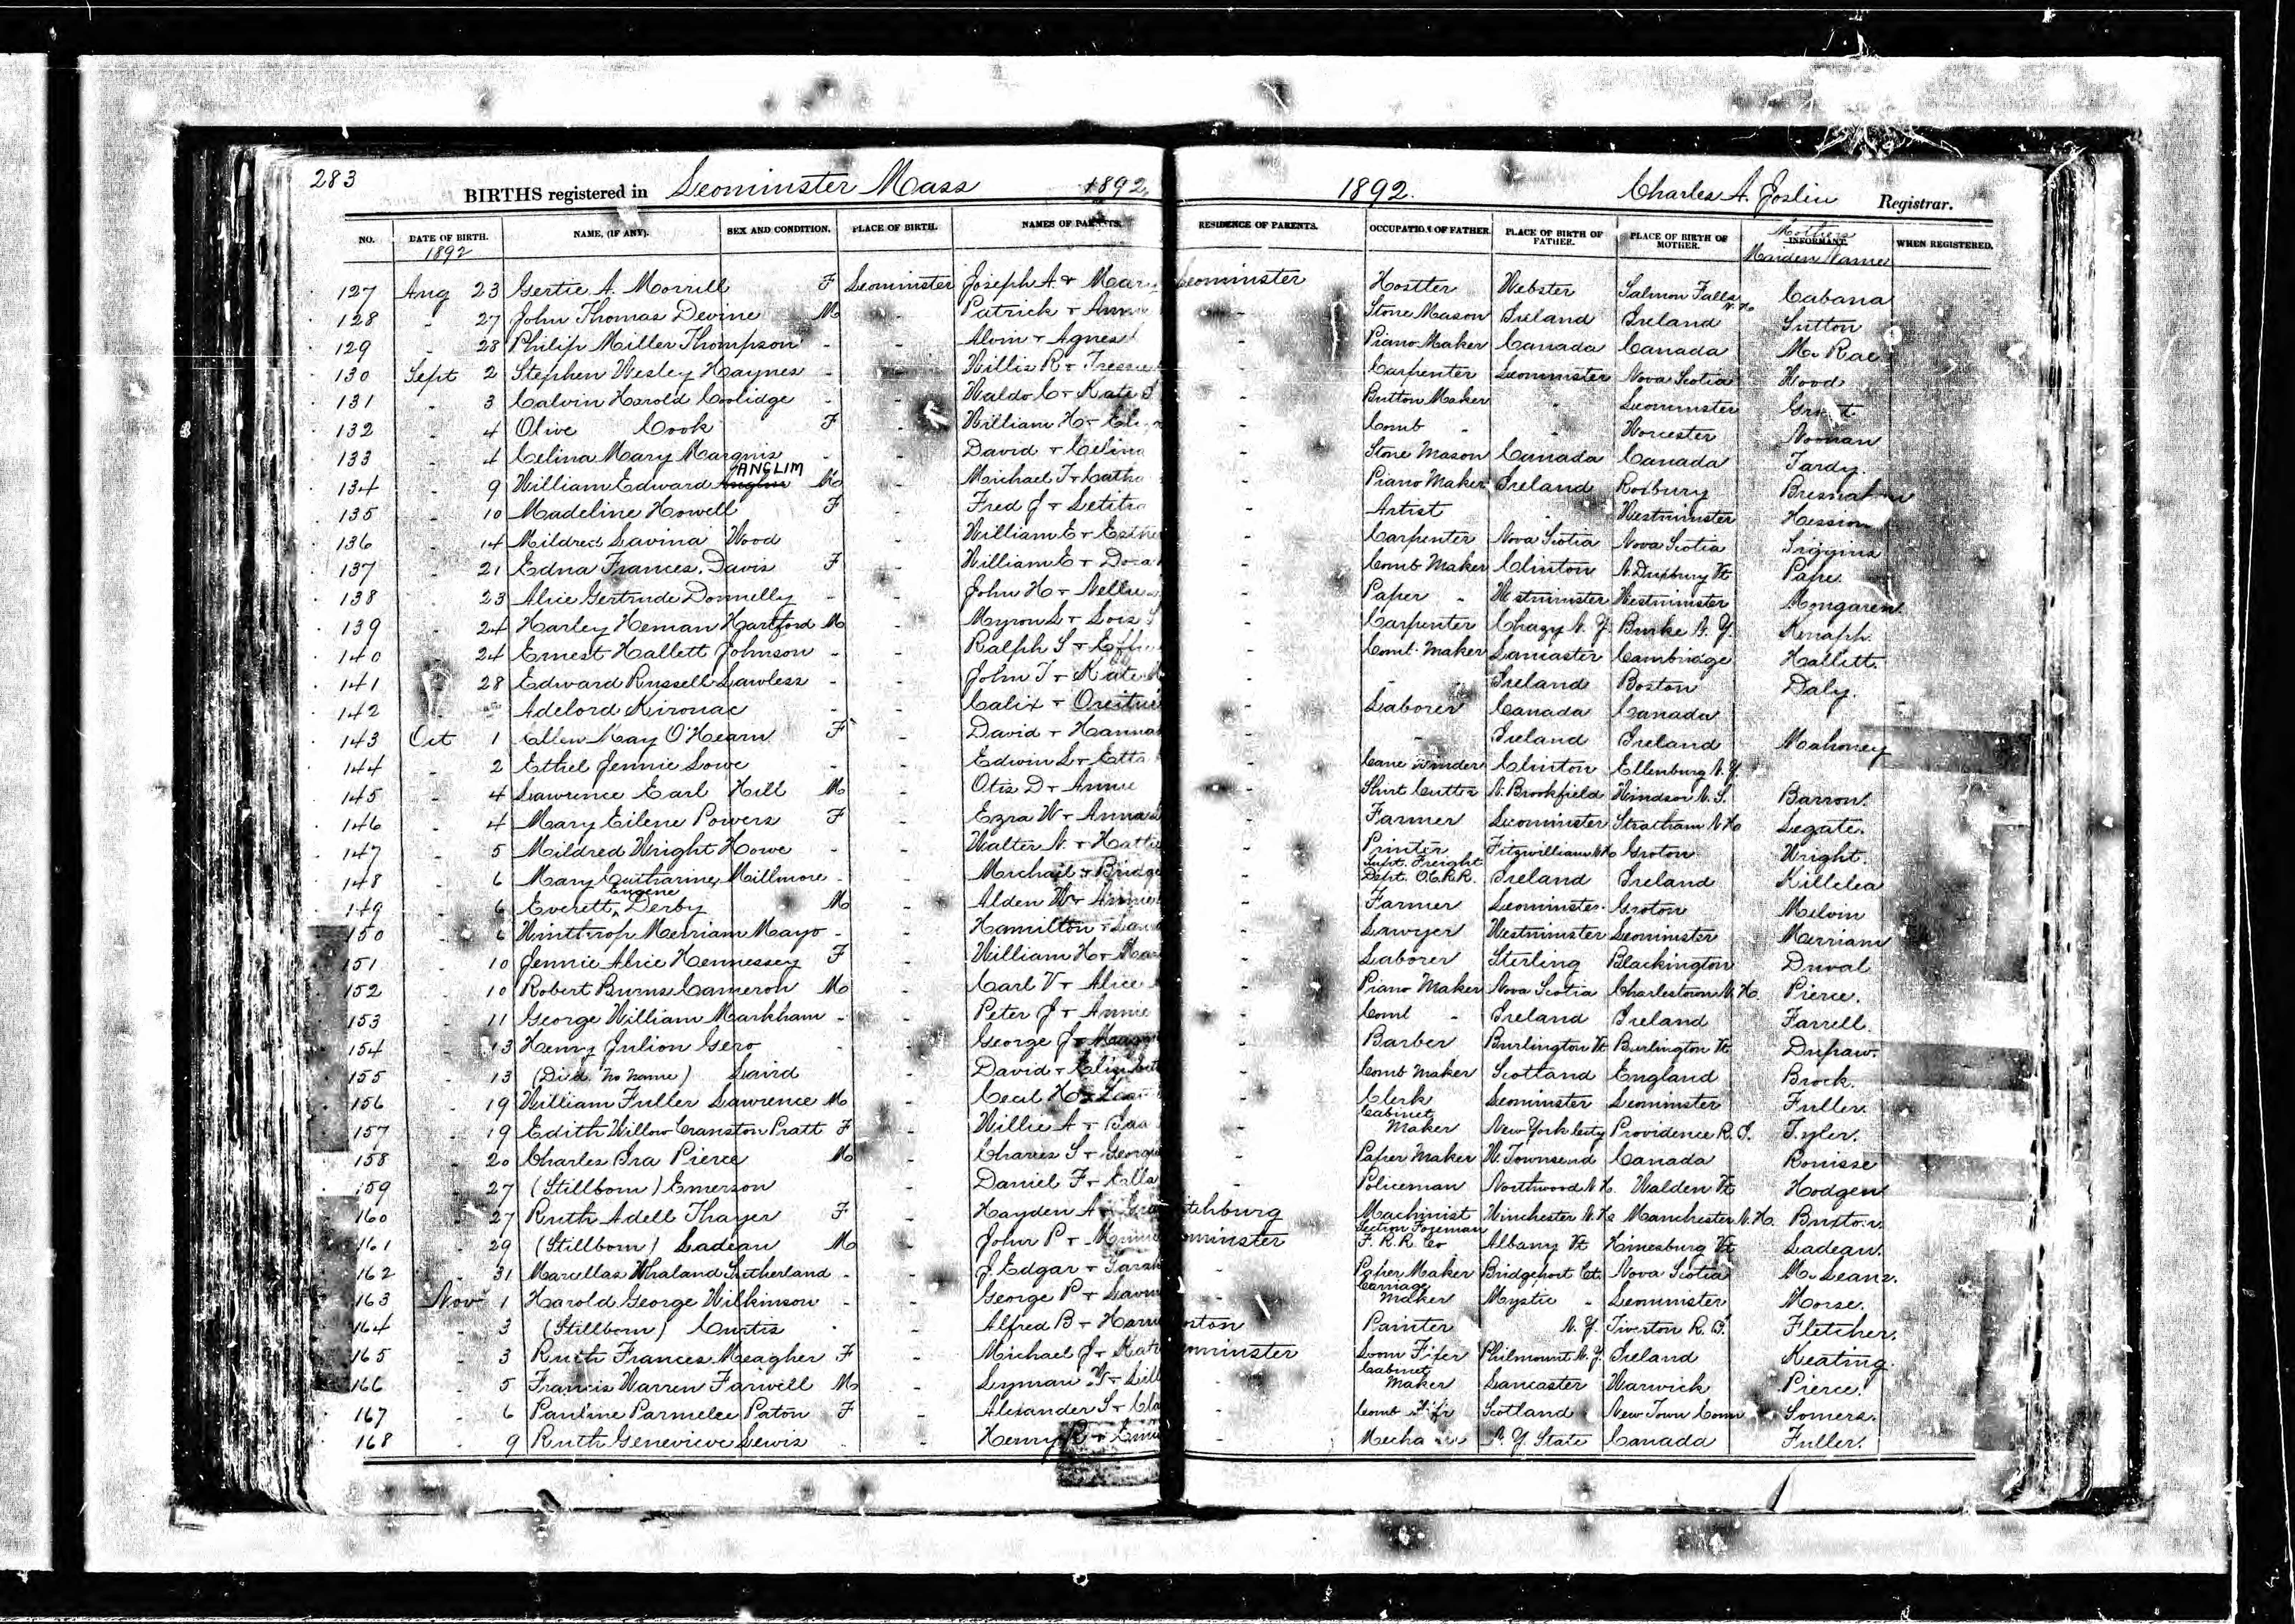 283
BIRTHS registered in Leominster Mass 1892. 1892. Charles A. Joslin Registrar.
NO. DATE OF BIRTH. NAME, (IF ANY). SEX AND CONDITION. PLACE OF BIRTH. NAMES OF PARENTS. RESIDENCE OF PARENTS. OCCUPATION OF FATHER. PLACE OF BIRTH OF FATHER. PLACE OF BIRTH OF MOTHER. Mothers INFORMANT. Maiden Name WHEN REGISTERED.
1892
127 Aug 23 Gertie A. Morrill F Leominster Joseph A. + Mary Leominster Hostler Webster Salmon Falls N.H. Cabana
128 " 27 John Thomas Devine M " Patrick + Annie " Stone Mason Ireland Ireland Sutton
129 " 28 Philip Miller Thompson " " Alvin + Agnes " Piano Maker Canada Canada McRae
130 Sept 2 Stephen Wesley Haynes " Willis R + " Carpenter Leominster Nova Scotia Wood
131 " 3 Calvin Harold Coolidge " " Waldo C + Kate " Button Maker " Leominster
132 " 4 Olive Cook F " William H + " Comb " " Worcester Noonan
133 " 4 Celina Mary Marquis " " David + Celina " Stone Mason Canada Canada Tardy.
134 " 9 William Edward ANGLIM M " Michael T + Catha " Piano Maker Ireland Roxbury
135 " 10 Madeline Howell F " Fred J + Letitia " Artist " Westminster Hession
136 " 14 Mildred Lavina Wood " William E + Esther " Carpenter Nova Scotia Nova Scotia Siggins
137 " 21 Edna Frances Davis F " William E + Dora " Comb Maker Clinton N. Duxbury Vt Pape.
138 " 23 Alice Gertrude Donnelly " " John H + Nellie " Paper " Westminster Westminster Mongaren
139 " 24 Harley Heman Hartford M " Myron L + Lois " Carpenter Chazy N.Y. Burke N.Y. Knaph.
140 " 24 Ernest Hallett Johnson " " Ralph S + Effie " Comb Maker Lancaster Cambridge Hallett.
141 " 28 Edward Russell Lawless " " John T + Kate " " Ireland Boston Daly.
142 Adelord Kirouac " " Calix + " Laborer Canada Canada
143 Oct 1 Ellen May O'Hearn F " David + Hannah " " Ireland Ireland Mahoney
144 " 2 Ethel Jennie Lowe " " Edwin L + Etta " Cane Clinton Ellenburg N.Y.
145 " 4 Lawrence Earl Hill M " Otis D + Annie " Shirt Cutter N. Brookfield Windsor N.S. Barron.
146 " 4 Mary Eilene Powers F " Ezra W + Anna " Farmer Leominster Stratham N H Legate.
147 " 5 Mildred Wright Howe " " Walter N. + Hattie " Printer Fitzwilliam N H Groton Wright.
148 " 6 Mary Catharine Millmore " " Michael + Bridge " Supt. Freight Dept. O.C.R.R. Ireland Ireland Killelea
149 " 6 Everett Eugene Derby M " Alden W + Annie " Farmer Leominster Groton Melvin
150 " 6 Winthrop Merriam Mayo " " Hamilton + " Lawyer Westminster Leominster Merriam
151 " 10 Jennie Alice Hennessey F " William H + " Laborer Sterling Blackington Duval
152 " 10 Robert Burns Cameron M " Carl V + Alice " Piano Maker Nova Scotia Charlestown N.H. Pierce.
153 " 11 George William Markham " " Peter J + Annie " Comb " Ireland Ireland Farrell.
154 " 13 Henry Julion Gero " " George J + " Barber Burlington Vt Burlington Vt Dupaw.
155 " 13 (Died. No name) Laird David + Elizabeth " Comb Maker Scotland England Brock.
156 " 19 William Fuller Lawrence M " Cecil H + " Clerk Leominster Leominster Fuller.
157 " 19 Edith Willow Cranston Pratt F " Willie A + " Cabinet Maker New York City Providence R.I. Tyler.
158 " 20 Charles Ira Pierce M " Charles S + Georgie " Paper Maker W. Townsend Canada Ronisse
159 " 27 (Stillborn) Emerson " Daniel F + Ella " Policeman Northwood N H. Walden Vt Hodgen
160 " 27 Ruth Adell Thayer F " Hayden A + itchburg Machinist Winchester N.H. Manchester N.H. Buxton.
161 " 29 (Stillborn) Ladeau M " John P + ominster Section Foreman F. R.R. Co Albany Vt Hinesburg Vt Ladeau.
162 " 31 Marcellas Whaland Sutherland " " J. Edgar + Sarah " Paper Maker Bridgeport Ct. Nova Scotia
163 Nov 1 Harold George Wilkinson " " George P + " Carriage Maker Mystic " Leominster Morse.
164 " 3 (Stillborn) Curtis " " Alfred B + oston Painter N.Y. Tiverton R.I. Fletcher.
165 " 3 Ruth Frances Meagher F " Michael J + ominster Loom Fixer Philmount N.Y. Ireland Keating.
166 " 5 Francis Warren Farwell M " Lyman + " Cabinet Maker Lancaster Warwick Pierce.
167 " 6 Pauline Parmelee Paton F " Alexander S + " Comb Scotland New Town Conn Somers.
168 " 9 Ruth Genevieve Lewis " " Henry R + " N.Y. State Canada Fuller.